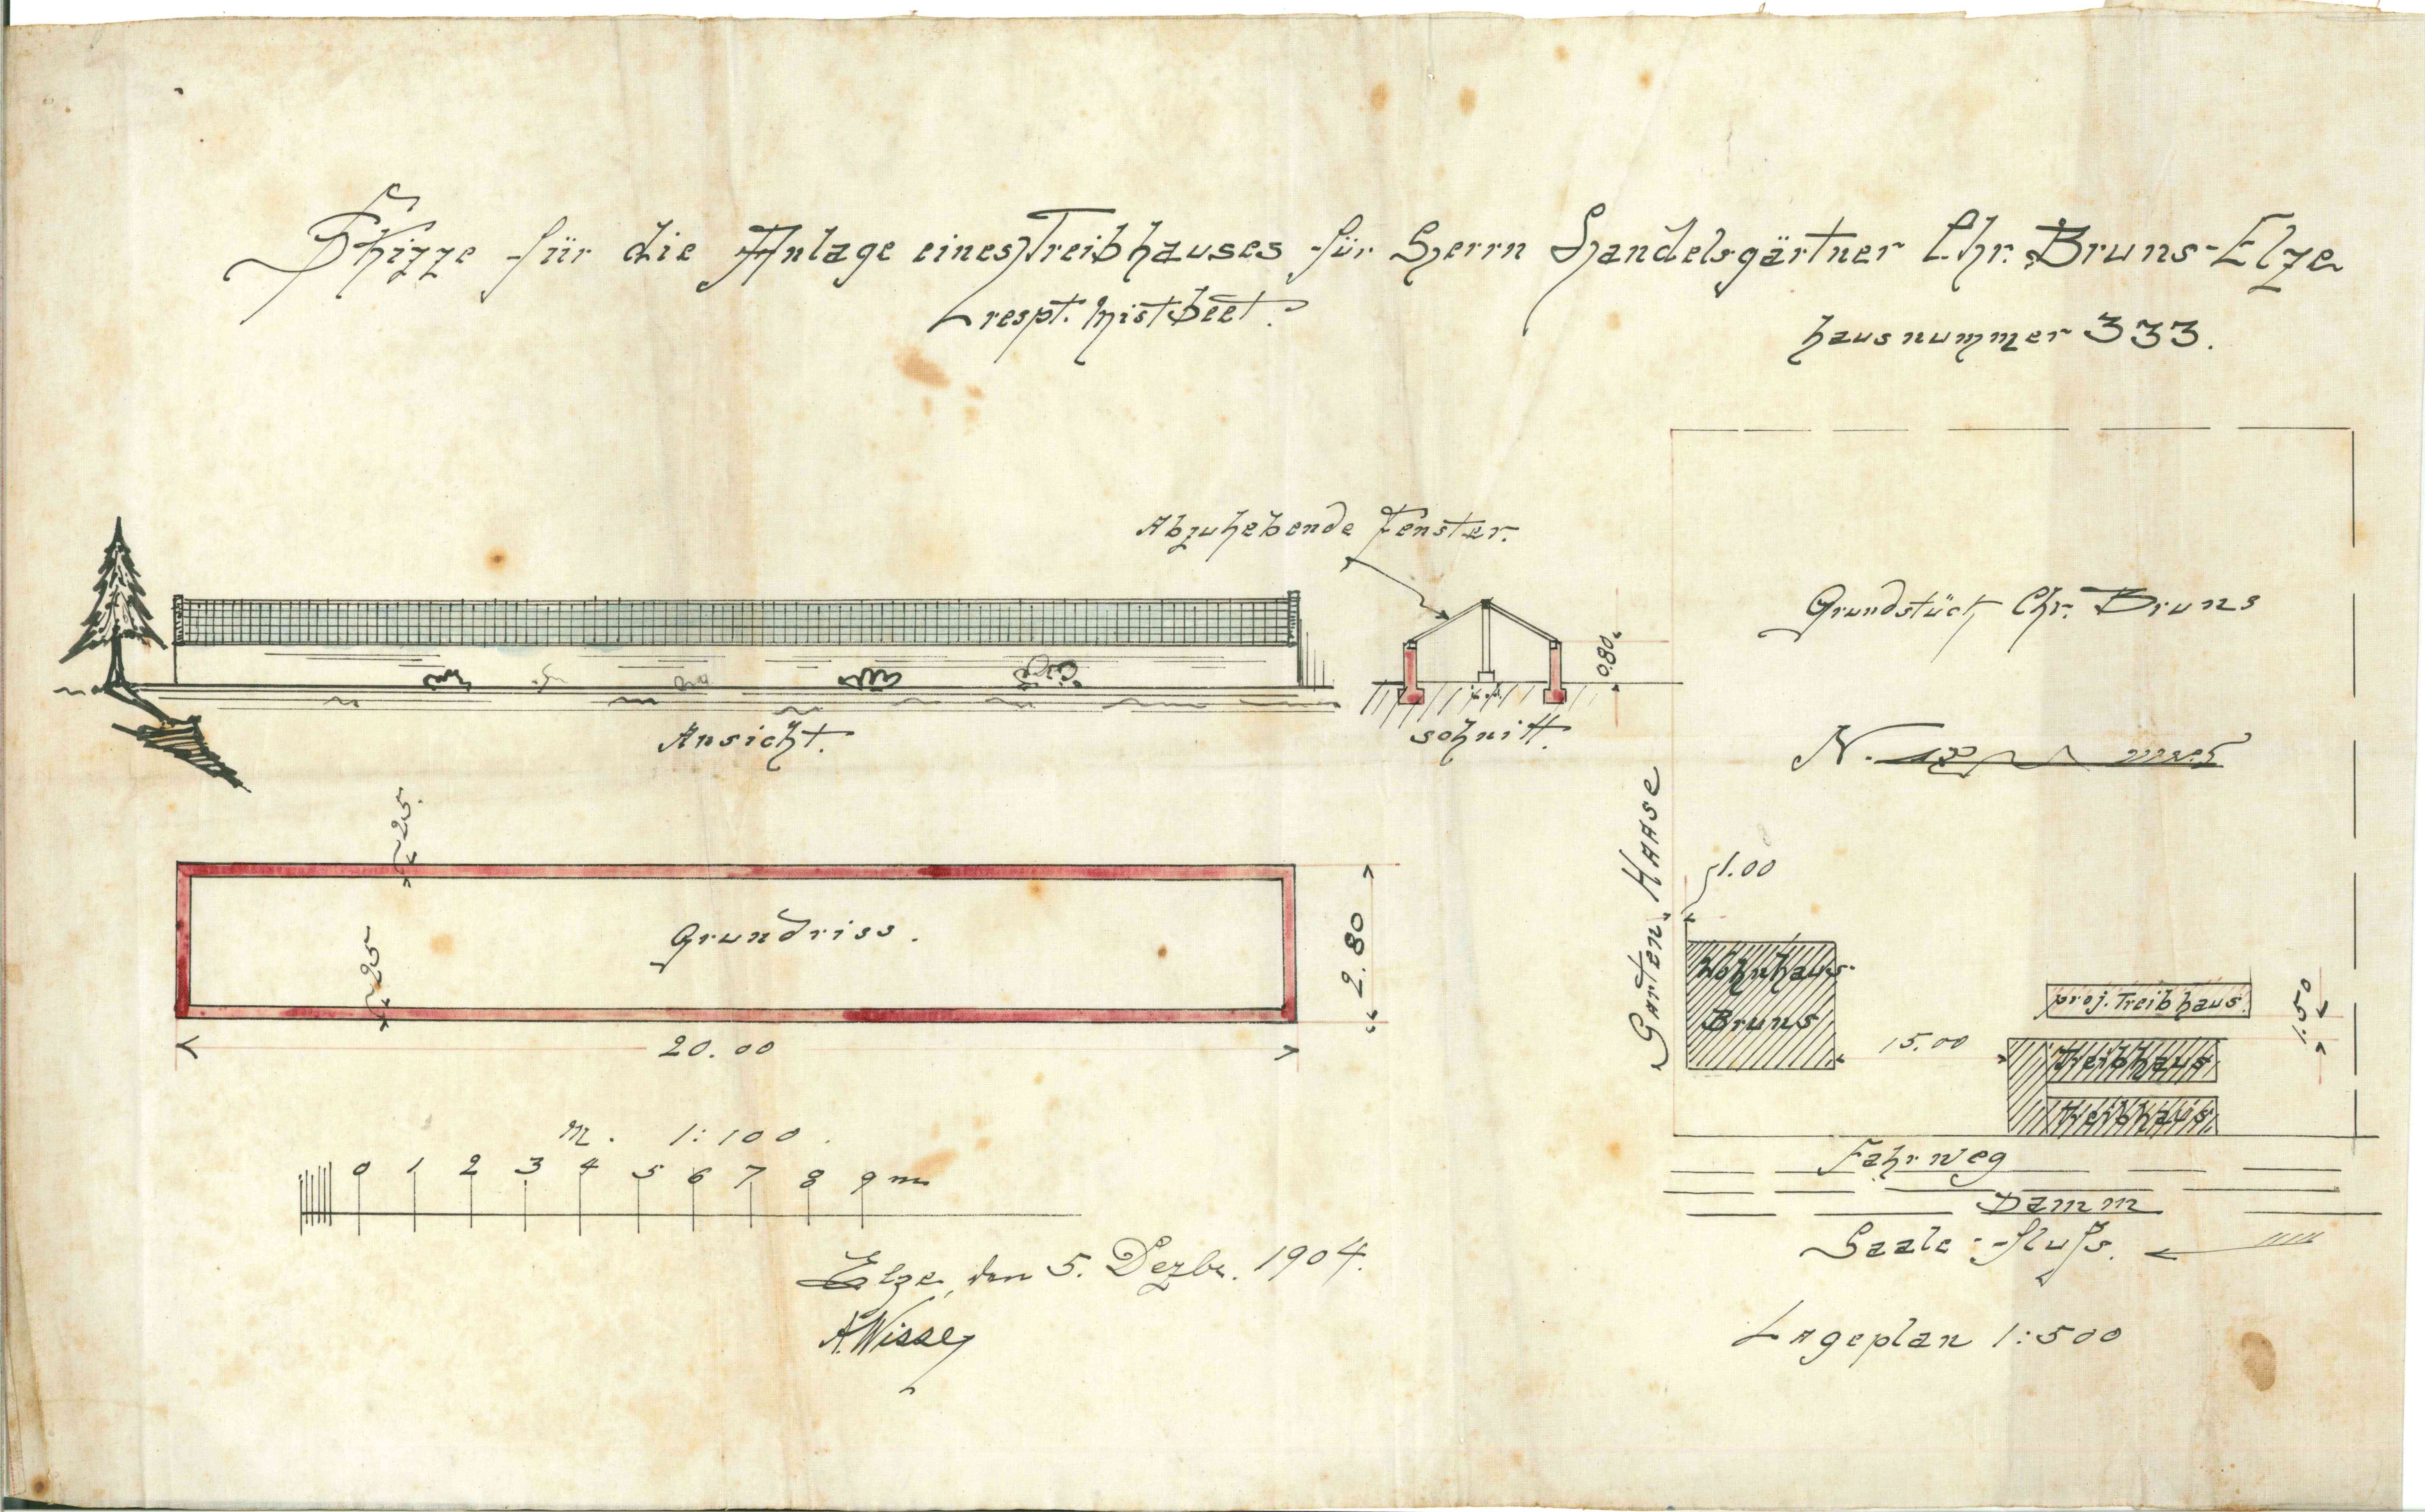 Skizze für die Anlage eines Treibhauses für Herrn Handelsgärtner Chr. Bruns-Elze
respt. Mistbeet.
hausnummer 333.
Abzuhebende Fenster.
0.80
Ansicht.
schnitt.
25.
25
Grundriss.
2.80
20.00
M. 1:100.
0 1 2 3 4 5 6 7 8 9 m
Elze, den 5. Dezbr. 1904.
Grundstück Chr. Bruns
N.
Garten Haase
1.00
Wohnhaus
Bruns
15.00
proj. Treibhaus.
1.50
Treibhaus
Treibhaus
Fahrweg
Damm
Saale-fluſs.
Lageplan 1:500